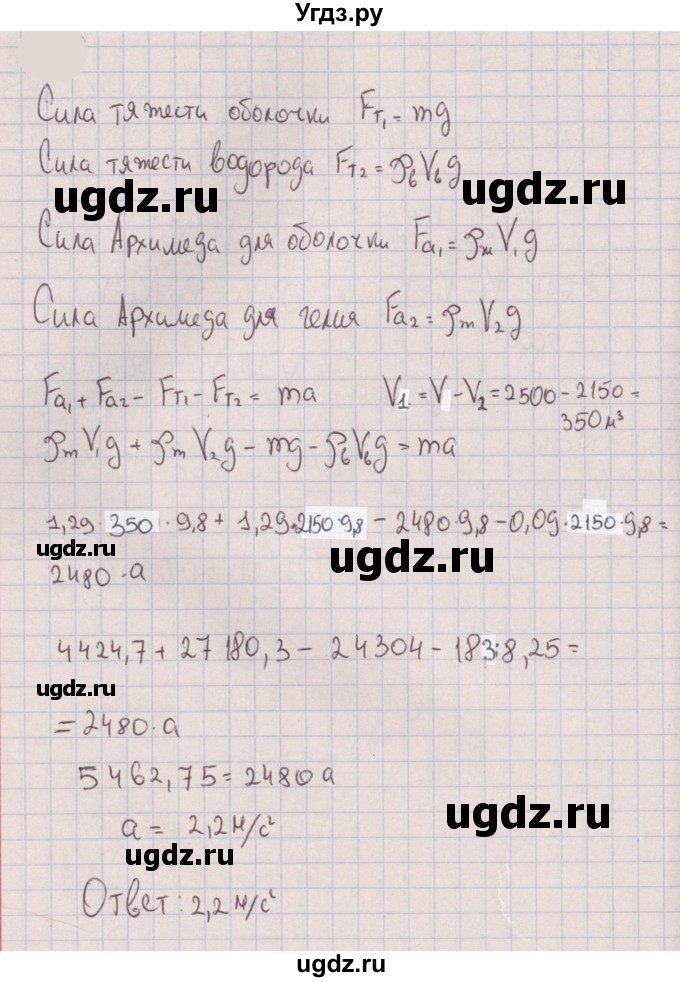 Угдз.ру
Сила тяжести оболочки Fт₁ = mg
Сила тяжести водорода Fт₂ = ρвVвg
ugdz.ru ugdz.ru
Сила Архимеда для оболочки Fa₁ = ρmV₁g
Сила Архимеда для гелия Fa₂ = ρmV₂g
Fa₁ + Fa₂ - Fт₁ - Fт₂ = ma V₁ = V - V₂ = 2500 - 2150 =
350 м³
ρmV₁g + ρmV₂g - mg - ρвVвg = ma
1,29 · 350 · 9,8 + 1,29 · 2150 · 9,8 - 2480 · 9,8 - 0,09 · 2150 · 9,8 =
ugdz.ru ugdz.ru ugdz.ru
2480 · a
4424,7 + 27180,3 - 24304 - 183:8,25 =
ugdz.ru
= 2480 · a
5462,75 = 2480 a
a = 2,2 м/с²
ugdz.ru ugdz.ru
Ответ: 2,2 м/с²
ugdz.ru
ugdz.ru